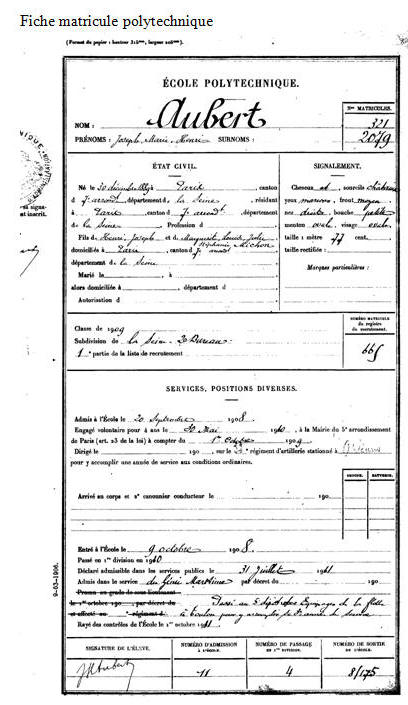 Fiche matricule polytechnique
(Format du papier : hauteur 315ᵐᵐ, largeur 206ᵐᵐ.)
ÉCOLE POLYTECHNIQUE.
NOM : Aubert
Nᵒˢ MATRICULES.
321
2079
PRÉNOMS : Joseph Marie Henri SURNOMS :
ÉTAT CIVIL.
Né le 30 décembre 1889 à Paris canton
d 7ᵉ arrondᵗ, département d la Seine, résidant
à Paris, canton d 7ᵉ arrondᵗ, département
de la Seine, Profession d
Fils de Henri, Joseph et de Marguerite Louise Julie
Stéphanie Michon
domiciliés à Paris, canton d 7ᵉ arrondᵗ
département de la Seine
Marié le à
alors domiciliée à , département d
Autorisation d
SIGNALEMENT.
Cheveux et sourcils châtains
yeux marrons, front moyen
nez droit, bouche petite
menton ovale, visage ovale
taille : mètre 77 cent.
taille rectifiée :
Marques particulières :
Classe de 1909
Subdivision de la Seine 2ᵉ Bureau
1ʳᵉ partie de la liste de recrutement
NUMÉRO MATRICULE
du registre
de recrutement.
665
SERVICES, POSITIONS DIVERSES.
Admis à l'École le 20 Septembre 1908.
Engagé volontaire pour 4 ans le Mai 1910, à la Mairie du 5ᵉ arrondissement
de Paris (art. 23 de la loi) à compter du 1ᵉʳ Octobre 1909
Dirigé le 190 , sur le régiment d'artillerie stationné à
pour y accomplir une année de service aux conditions ordinaires.
GROUPE. BATTERIE.
Arrivé au corps et 2ᵉ canonnier conducteur le 190
Entré à l'École le 9 octobre 1908.
Passé en 1ʳᵉ division en 1910
Déclaré admissible dans les services publics le 31 Juillet 1911
Admis dans le service du Génie Maritime par décret du 190
Promu au grade de sous-lieutenant
le 1ᵉʳ octobre 190 , par décret du Passé au 5ᵉ dépôt des Equipages de la flotte
et affecté au régiment à Toulon pour y accomplir
Rayé des contrôles de l'École le 1ᵉʳ octobre 1911
9-03-1906.
SIGNATURE DE L'ÉLÈVE.
JHAubert
NUMÉRO D'ADMISSION
À L'ÉCOLE.
11
NUMÉRO DE PASSAGE
EN 1ʳᵉ DIVISION.
4
NUMÉRO DE SORTIE
DE L'ÉCOLE.
8/175